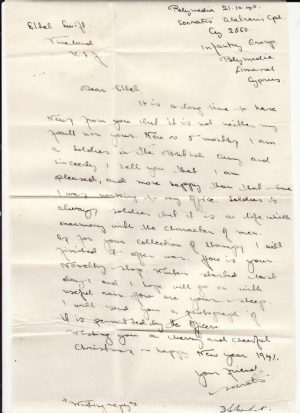 Polymedia 21.10.40.
Ethel Swift
Socratis Cpl.
Cy 2560.
Infantry Group,
Polymedia
Limassol
Cyprus.
Dear Ethel
It is a long time to have
News from you but it is not neither my
fault nor your. Now is 5 months I am
a Soldier in the British Army and
sincerely I tell you that I am
pleased, and more happy than that time
I was working to my office. Soldier is
always soldier but it is a life with
the character of men.
As for your Collection of Stamps I will
it after war. How is your
Novelty shop. Winter started last
days and I hope will go on with
useful rain. How are your sheep.
I will send you a photograph if
it is permitted by the officers.
Wishing you a merry and cheerful
Christmas & happy New year 1941.
your friend
Socratis
"Waiting reply"